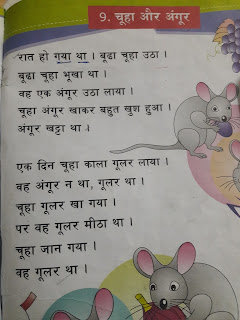 9. चूहा और अंगूर
रात हो गया था । बूढा चूहा उठा ।
बूढा चूहा भूखा था ।
वह एक अंगूर उठा लाया ।
चूहा अंगूर खाकर बहुत खुश हुआ ।
अंगूर खट्टा था ।
एक दिन चूहा काला गूलर लाया ।
वह अंगूर न था, गूलर था ।
चूहा गूलर खा गया ।
पर वह गूलर मीठा था ।
चूहा जान गया ।
वह गूलर था ।